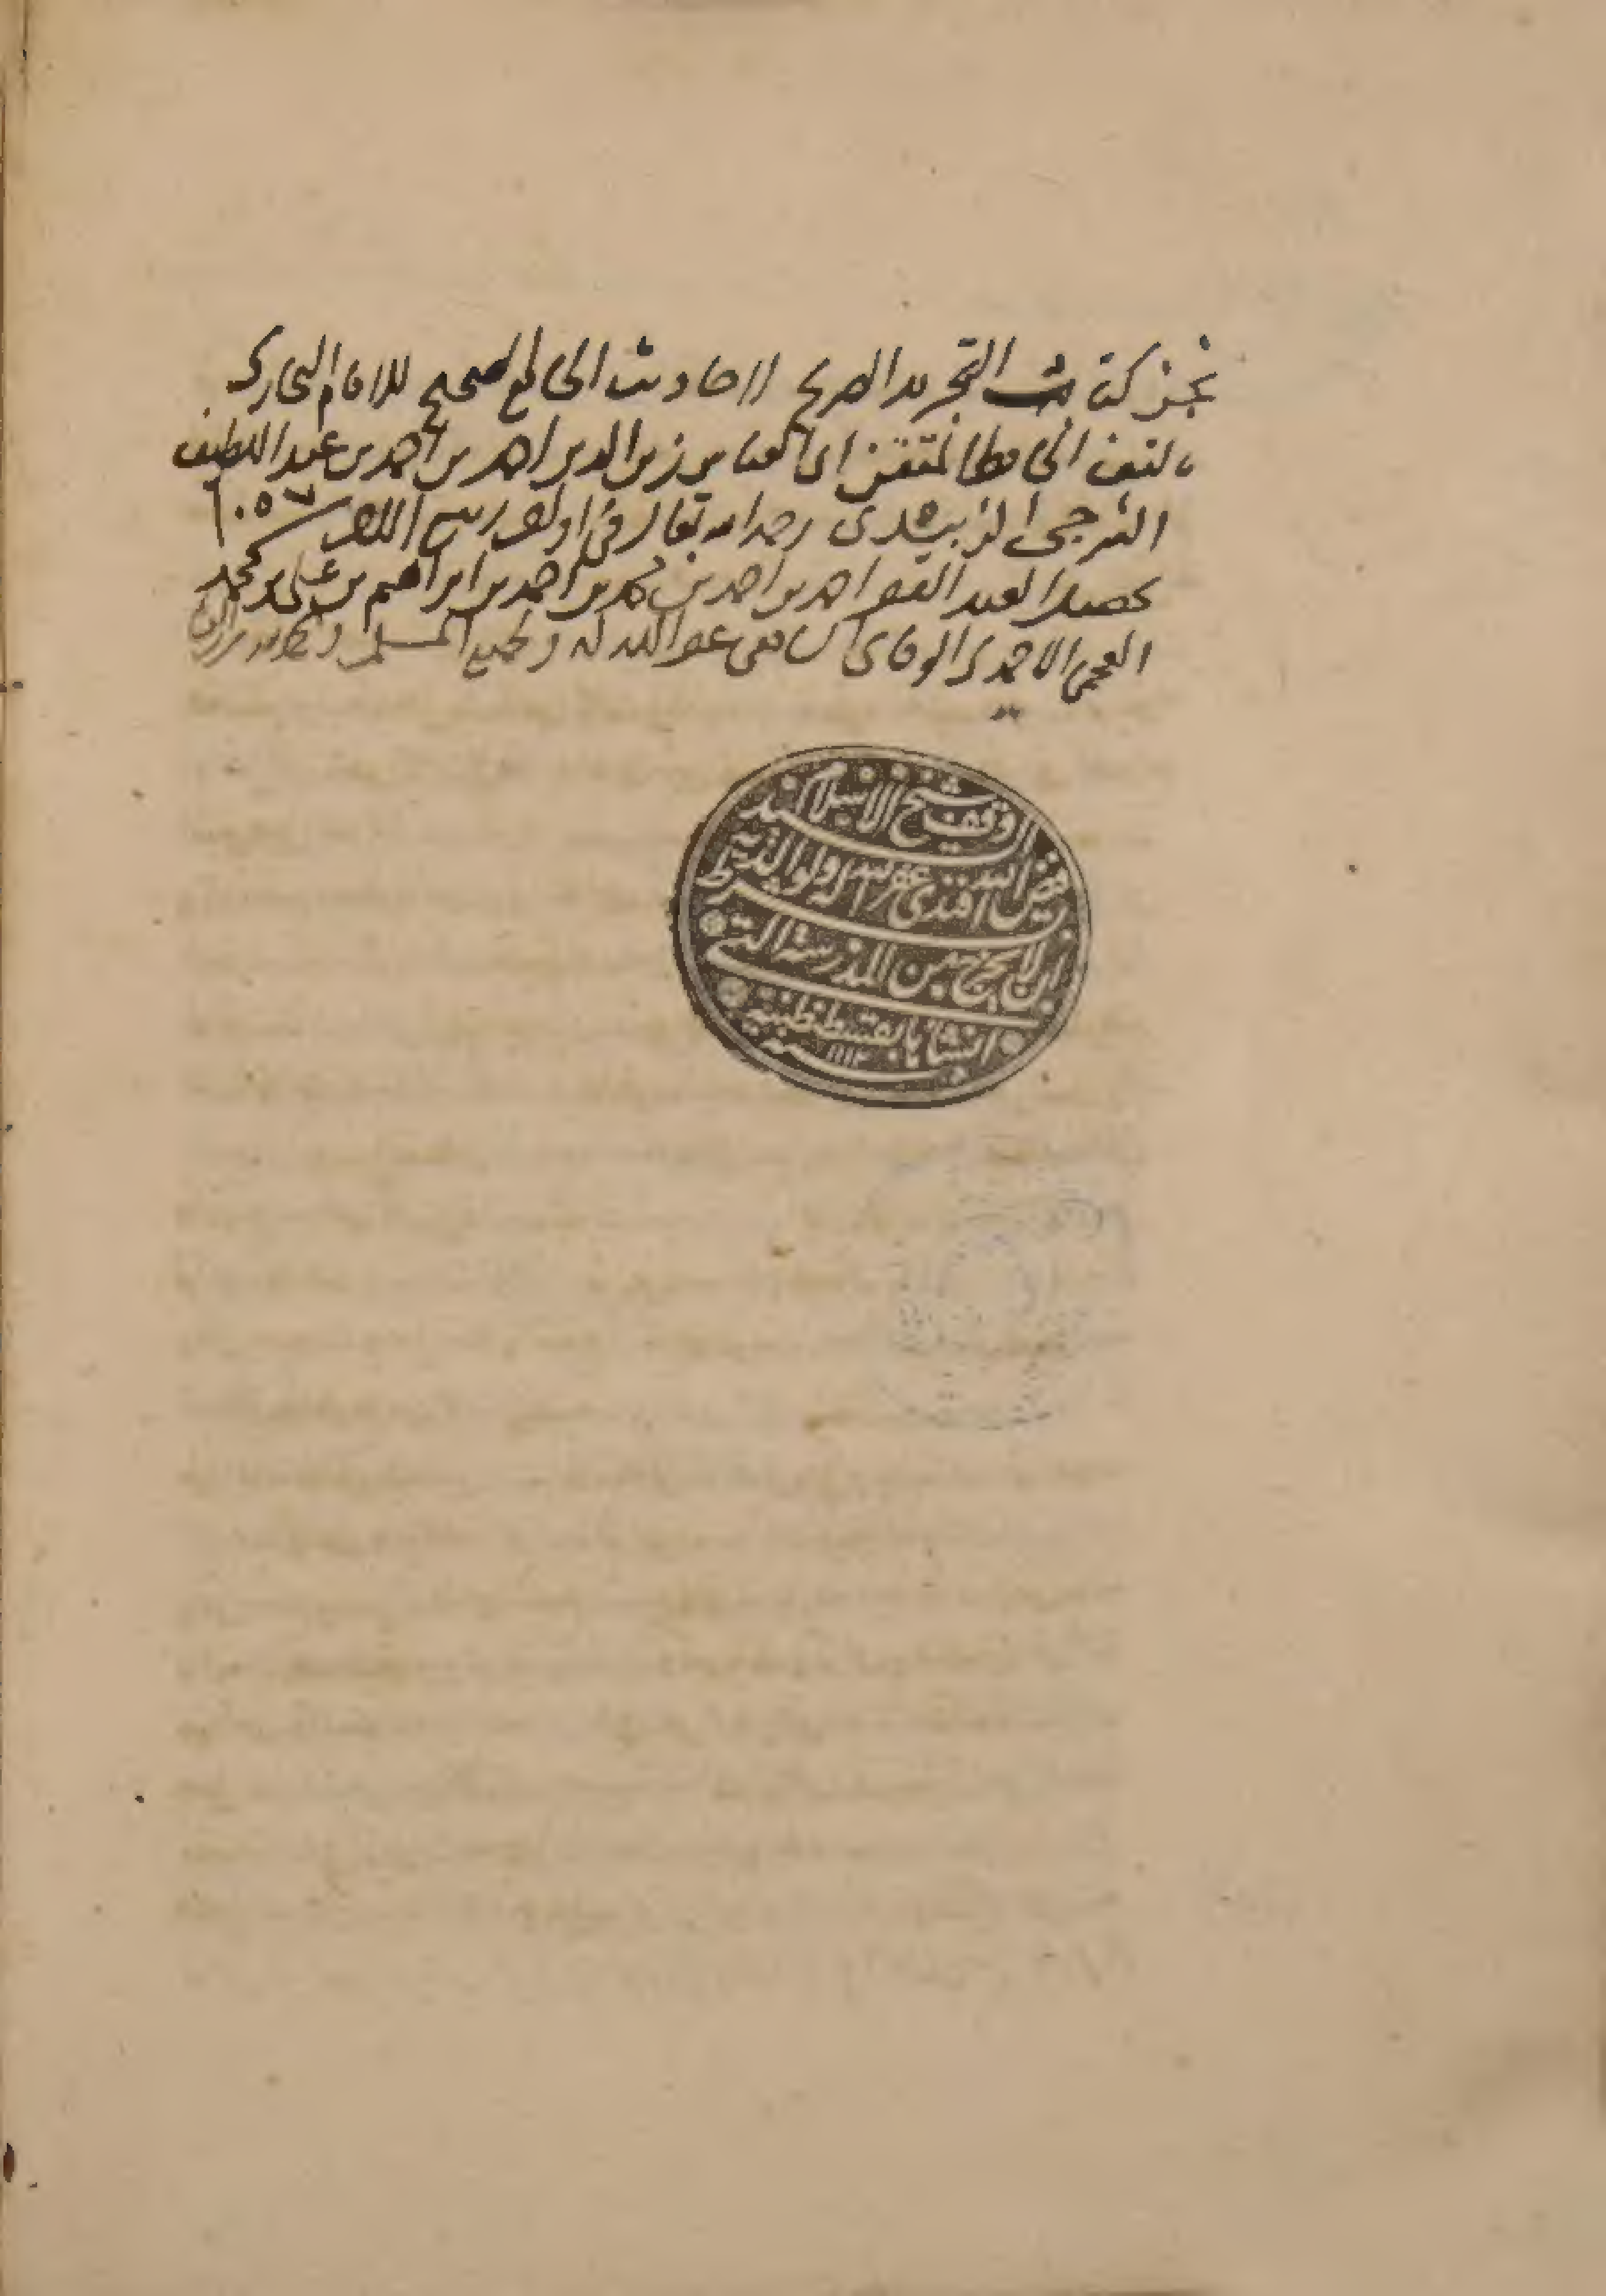 نجز كتاب التجريد الصريح لاحاديث الجامع الصحيح للامام البخاري
تاليف الحافظ المتقن ابي العباس زين الدين احمد بن احمد بن عبد اللطيف
الشرجي الزبيدي رحمه الله تعالى في اوائل ربيع الاول ١٠٥٧
تحصيل العبد الفقير احمد بن احمد بن محمد بن احمد بن ابراهيم بن علي بن محمد
العجمي الاحمدي الوفائي الشافعي عفا الله له ولجميع المسلمين
اوقف شيخ الاسلام السيد
فيض الله افندي غفر الله له ولوالديه بشرط
ان لا يخرج من المدرسة التي
انشاها بقسطنطينية
سنة ١١١٢